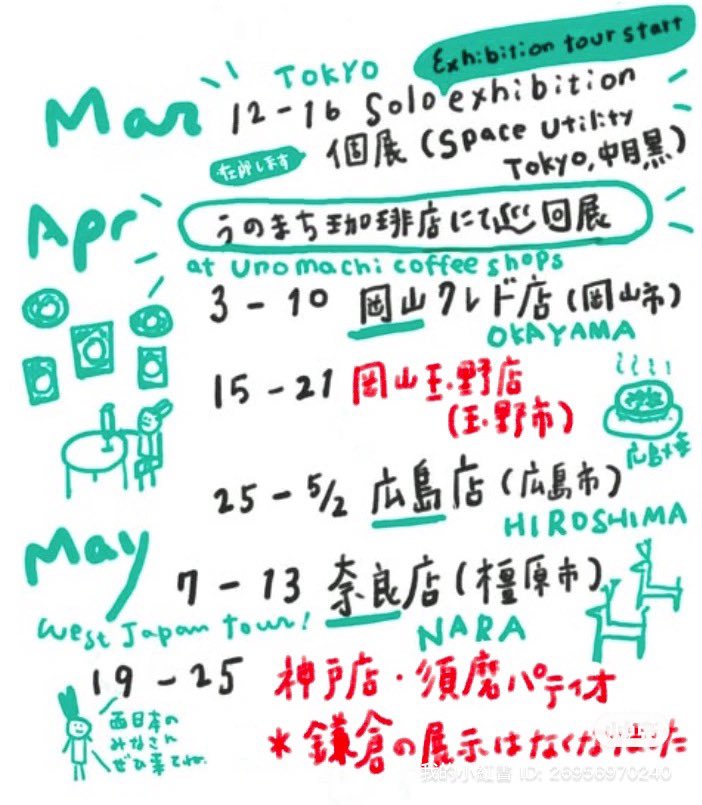 Exhibition tour start
Mar
TOKYO
12-16 Solo exhibition
個展 (Space Utility
Tokyo, 中目黒)
在郎します
Apr
うのまち珈琲店にて巡回展
at unomachi coffee shops
3-10 岡山クレド店 (岡山市)
OKAYAMA
15-21 岡山玉野店
(玉野市)
広島焼
25-5/2 広島店 (広島市)
HIROSHIMA
May
7-13 奈良店 (橿原市)
West Japan tour!
NARA
19-25 神戸店・須磨パティオ
西日本の
みなさん
ぜひ来てね
*鎌倉の展示はなくなりました
小紅書
我的小紅書 ID: 26956970240